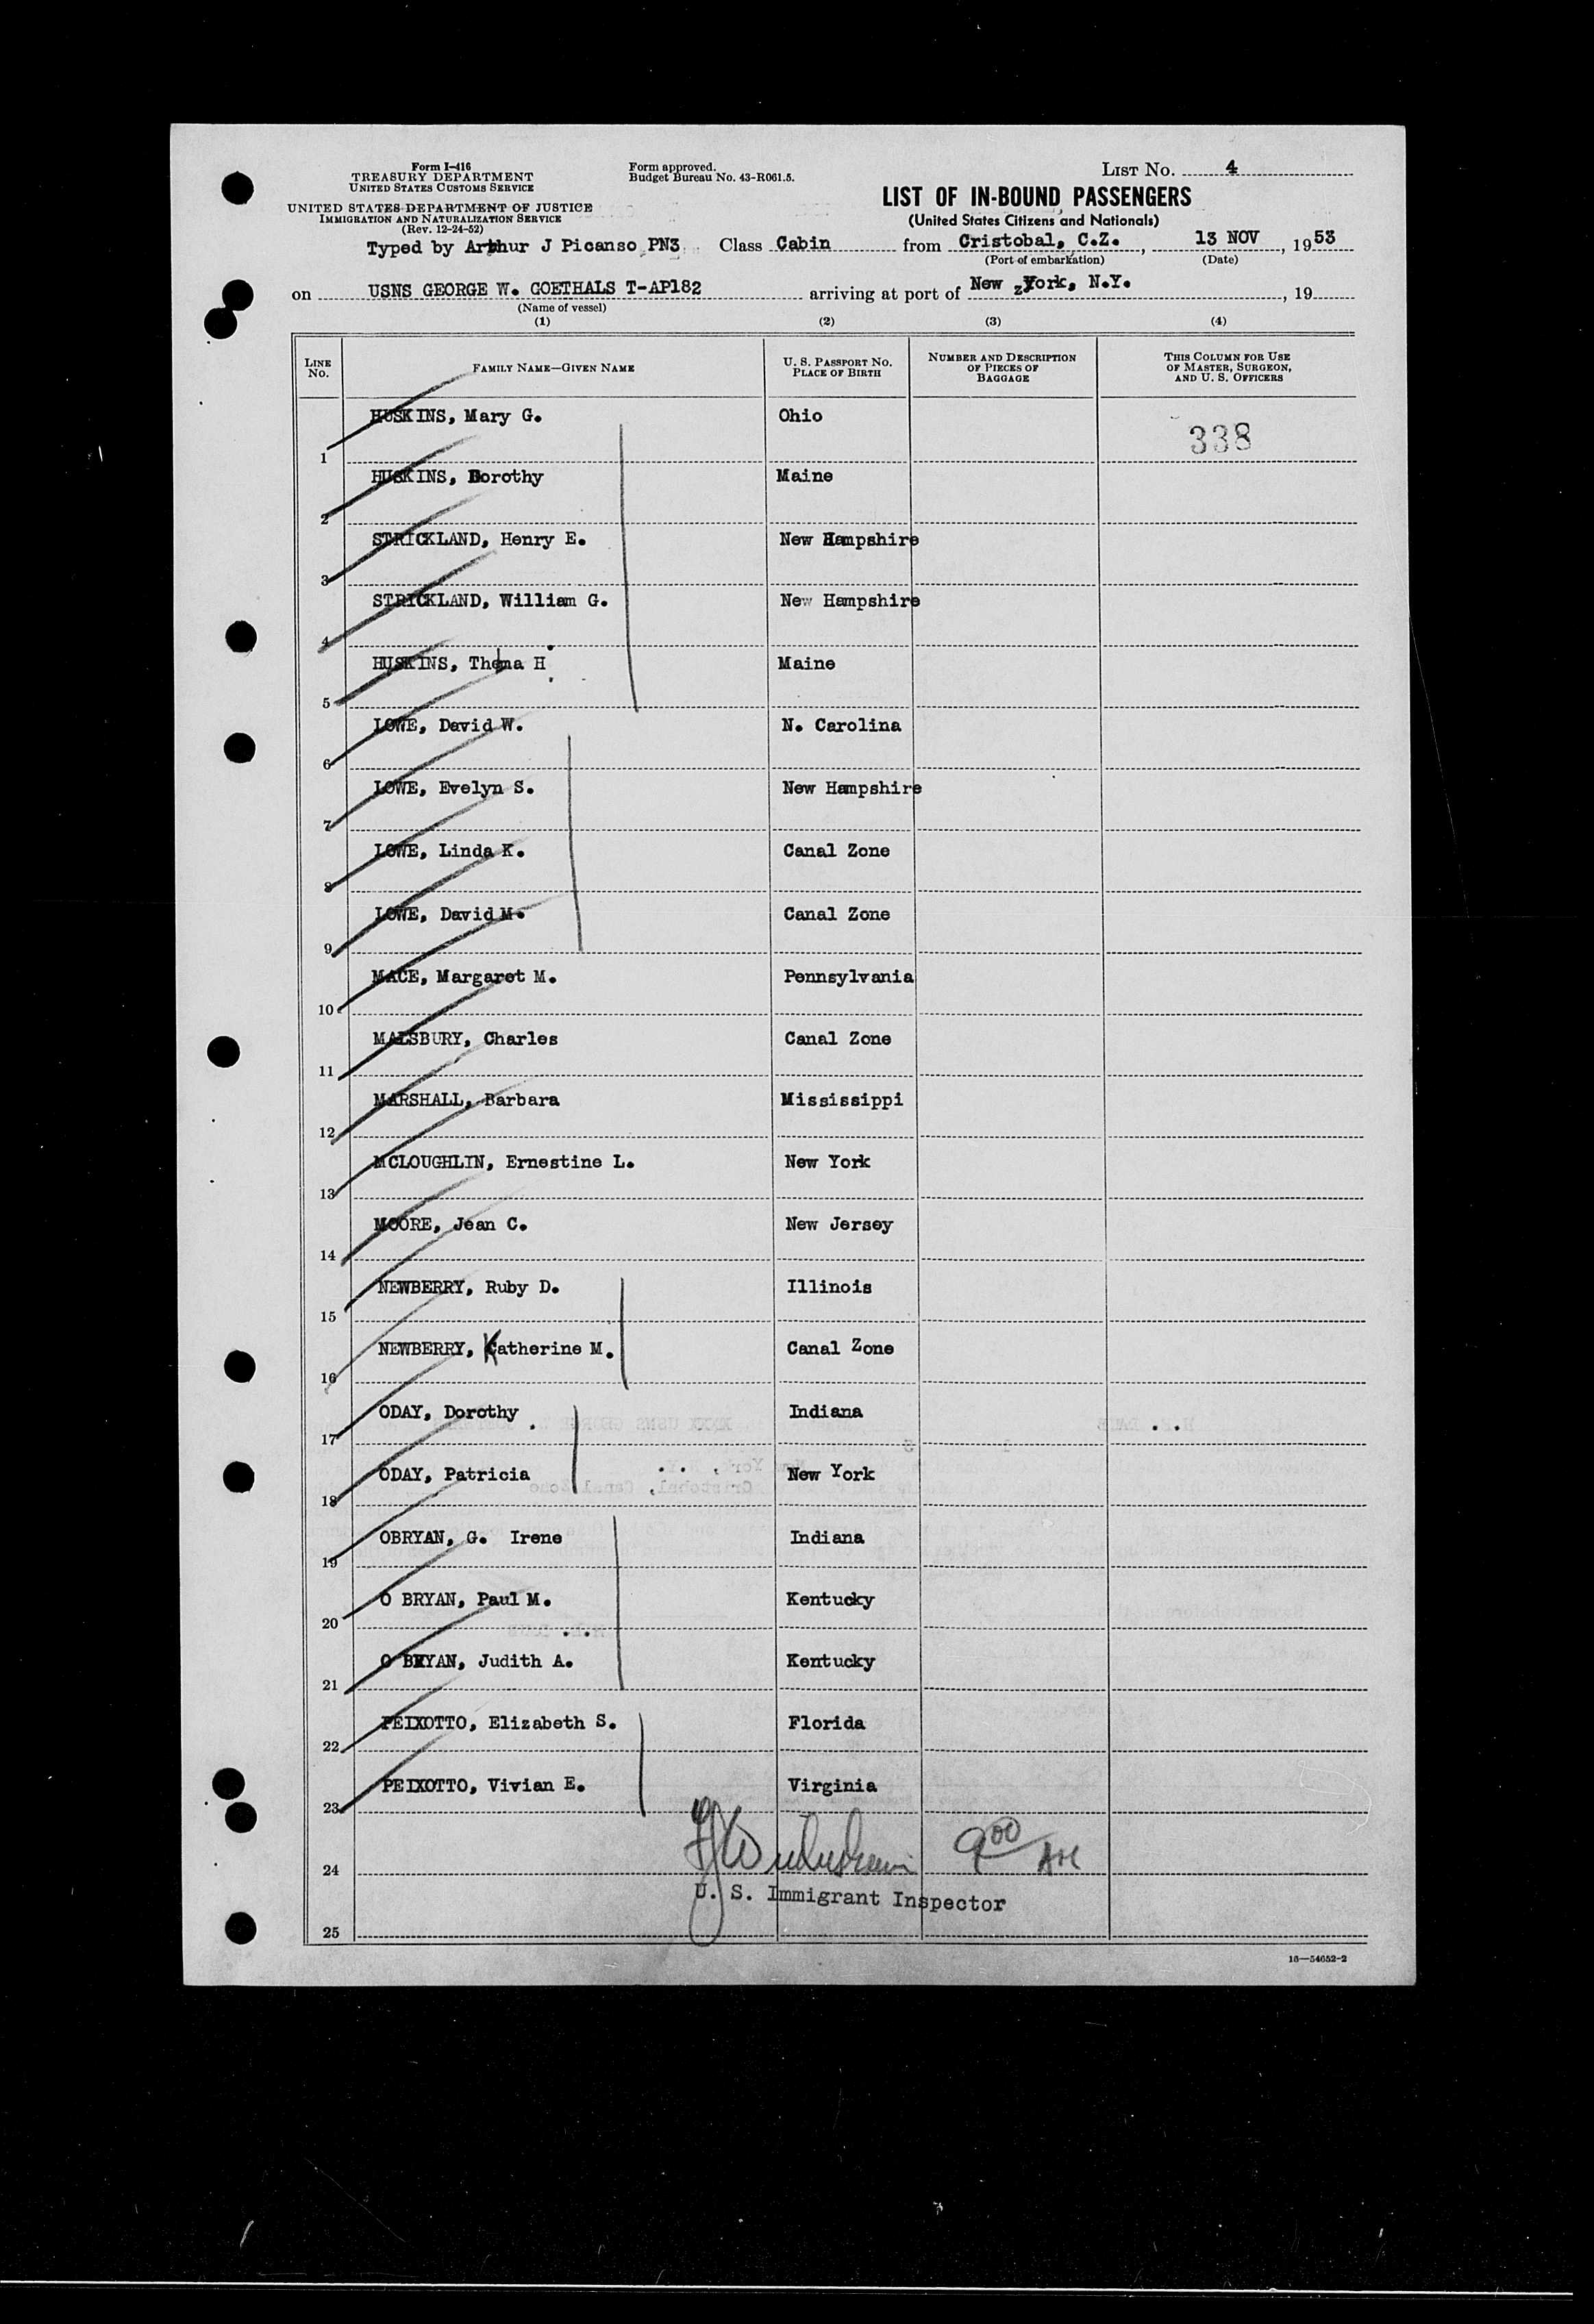 Form I-416
TREASURY DEPARTMENT
UNITED STATES CUSTOMS SERVICE
UNITED STATES DEPARTMENT OF JUSTICE
IMMIGRATION AND NATURALIZATION SERVICE
(Rev. 12-24-52)
Form approved.
Budget Bureau No. 43-R061.5.
LIST No. 4
LIST OF IN-BOUND PASSENGERS
(United States Citizens and Nationals)
Typed by Arthur J Picanso PN3 Class Cabin from Cristobal, C.Z., 13 NOV, 1953
(Port of embarkation) (Date)
on USNS GEORGE W. GOETHALS T-AP182 arriving at port of New York, N.Y., 19
(Name of vessel)
(1) (2) (3) (4)
LINE No. FAMILY NAME—GIVEN NAME U. S. PASSPORT NO. PLACE OF BIRTH NUMBER AND DESCRIPTION OF PIECES OF BAGGAGE THIS COLUMN FOR USE OF MASTER, SURGEON, AND U. S. OFFICERS
1 HUSKINS, Mary G. Ohio 338
2 HUSKINS, Dorothy Maine
3 STRICKLAND, Henry E. New Hampshire
4 STRICKLAND, William G. New Hampshire
5 HUSKINS, H. Maine
6 LOWE, David W. N. Carolina
7 LOWE, Evelyn S. New Hampshire
8 LOWE, Linda K. Canal Zone
9 LOWE, David M. Canal Zone
10 MACE, Margaret M. Pennsylvania
11 MALSBURY, Charles Canal Zone
12 MARSHALL, Barbara Mississippi
13 MCLOUGHLIN, Ernestine L. New York
14 MOORE, Jean C. New Jersey
15 NEWBERRY, Ruby D. Illinois
16 NEWBERRY, Katherine M. Canal Zone
17 ODAY, Dorothy Indiana
18 ODAY, Patricia New York
19 OBRYAN, G. Irene Indiana
20 O BRYAN, Paul M. Kentucky
21 O BRYAN, Judith A. Kentucky
22 PEIXOTTO, Elizabeth S. Florida
23 PEIXOTTO, Vivian E. Virginia
24 9 00
U. S. Immigrant Inspector
25
16—54652-2